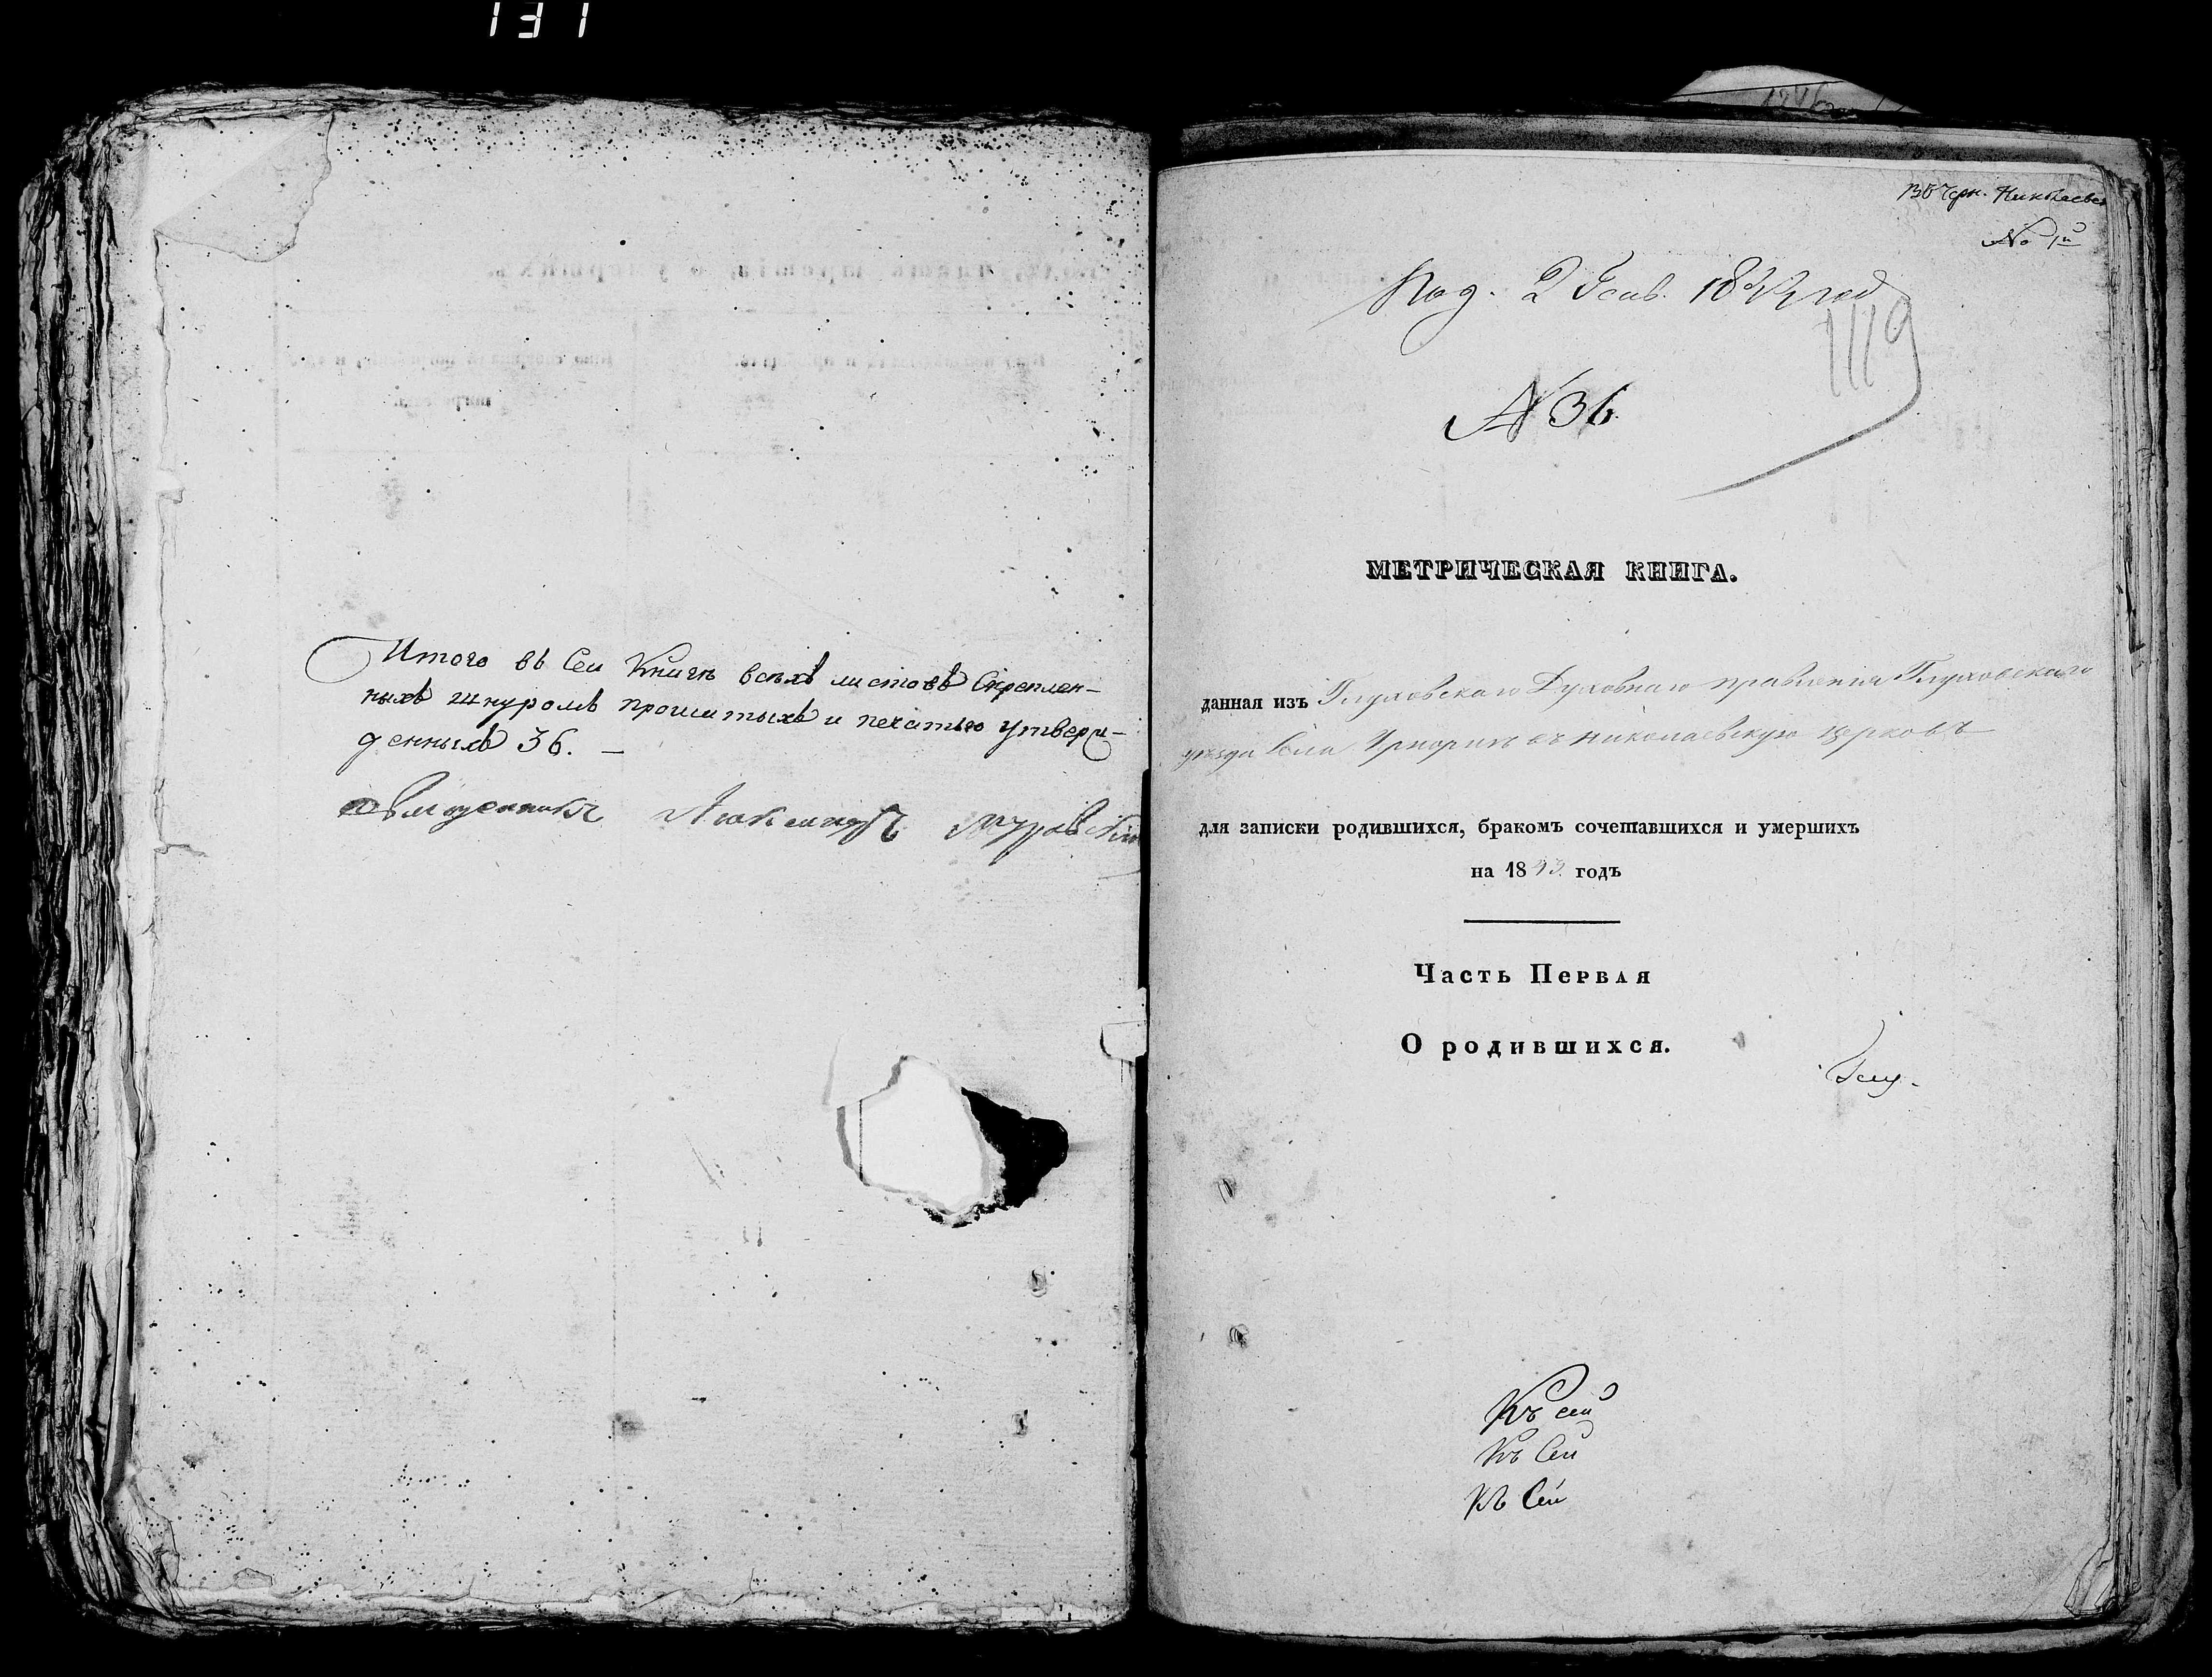 131
Итого въ Сей Книгѣ всѣхъ листовъ Скреплен-
ныхъ шнуромъ прошитыхъ и печатью утверж-
денныхъ 36. —
Александръ
№ 1й
Под. 2 Генв. 1844 год
1119
№ 36.
МЕТРИЧЕСКАЯ КНИГА.
данная изъ Глуховскаго Духовнаго правления Глуховскаго
уѣзда Села въ николаевскую церковь
для записки родившихся, бракомъ сочетавшихся и умершихъ
на 1843 годъ
Часть Первая
О родившихся.
Къ сей
Къ Сей
Къ Сей